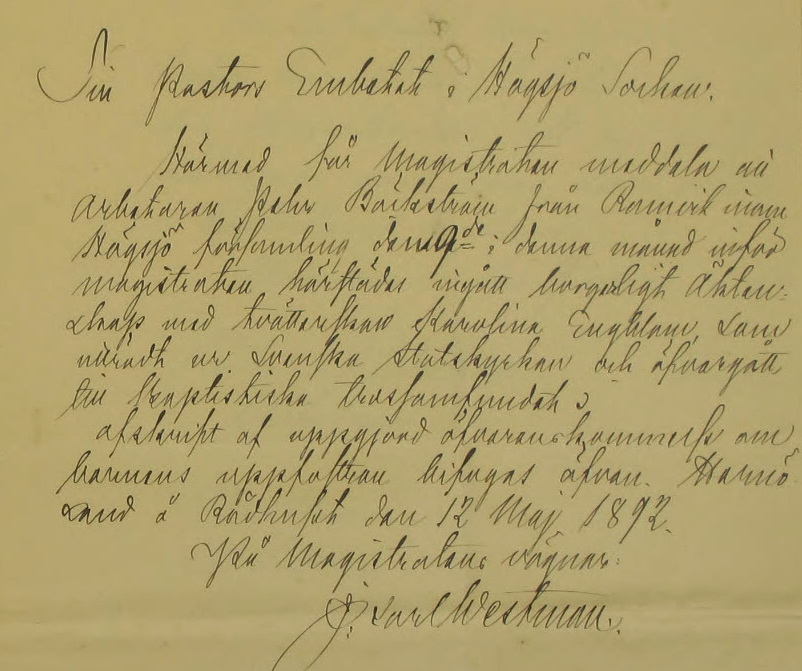 Till Pastors Embetet i Högsjö Socken.
Härmed får Magistraten meddela att
arbetaren Pehr Bäckström från Ramvik inom
Högsjö församling den 9de i denna månad inför
magistraten härstädes ingått borgerligt Äkten-
skap med tvätterskan Karolina Englblom, som
utträdt ur Svenska Statskyrkan och öfvergått
till baptistiska trossamfundet;
afskrift af uppgjord öfverenskommelse om
barnens uppfostran bifogas äfven. Hernö-
sand å Rådhuset den 12 Maj 1892.
På Magistratens vägnar:
Carl Westman.